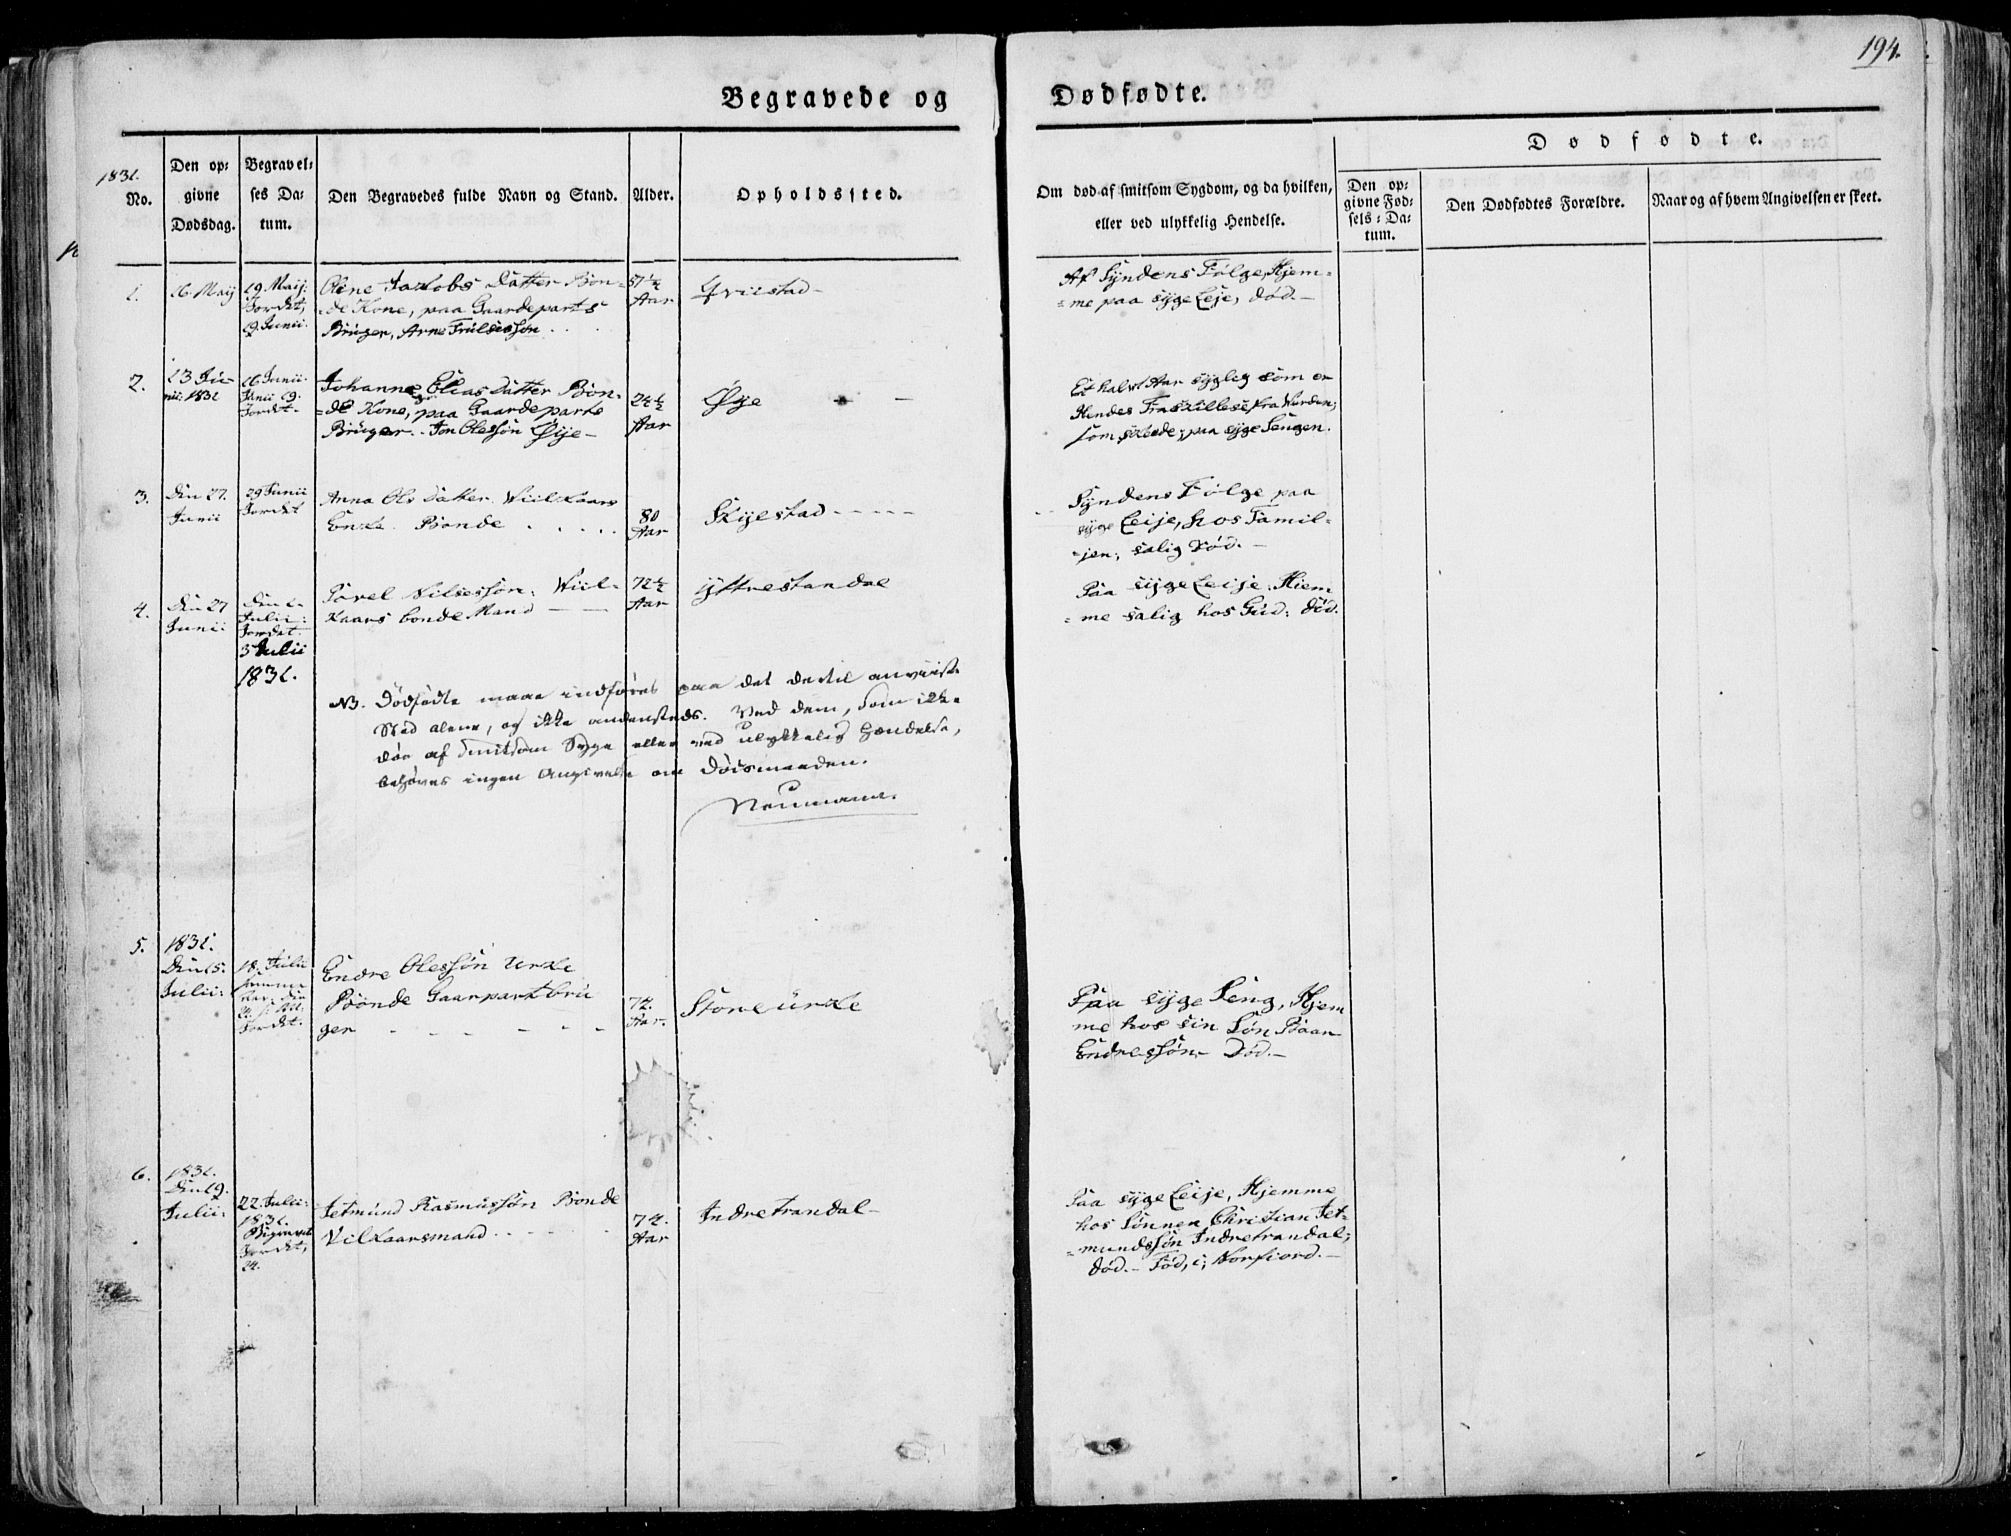 194.
Begravede og Dødfødte.
Dødfødte.
1831.
No.
Den op:
givne
Dødsdag.
Begravel:
ses Da:
tum.
Den Begravedes fulde Navn og Stand.
Alder.
Opholdssted.
Om død af smitsom Sygdom, og da hvilken,
eller ved ulykkelig Hendelse.
Den op:
givne Fød:
sels: Da:
tum.
Den Dødfødtes Forældre.
Naar og af hvem Angivelsen er skeet.
1.
16 Maij
19 Maij:
Jordet,
9 Junii.
Olene Jakobs Datter Bon=
de Kone, paa Gaardeparts
Brüger, Arne
51½
Aar
Qviistad-
Af Syndens Følge, Hjem=
=me paa syge Leje, død.-
2.
13 Jü-
nii. 1831
16 Junii
Junii 19.
Jordet-
Johanne Elias Datter Bön-
=de Kone, paa Gaardeparts
Brüger.. Jon Olessøn Øije-
24½
Aar
Øye - -
Et halvt Aar syglig som er
Hendes Fraskillelse fra Verden;
som skeede; paa syge Sengen.
3.
Din 27.
Junii
29 Junii
Jordet
Anna Ols Datter. Viilkaars
Enke. Bonde . . . .
80
Aar
Skyestad - - - - -
Syndens Følge paa
syge Leije, hos Famil=
=jen; salig Død.-
4.
Din 27
Junii
Din 1-
Julii:
Jordet.
3 Julii
1831.
Povel Nilsessøn. Viil=
Kaars bonde Mand - -
72½
Aar
Yttrestandal
Paa syge Leije. Hiem
=me salig hos Gud: død.
NB. Dødfødte maae indføres paa det dertil anviiste
Sted alene, og ikke andensteds. Ved dem, som ikke
døe af smitsom Syge eller ved ulykkelig Hændelse,
behøves ingen Angivelse om Dødsmaaden.
Neumann.
5.
1831.
Din 15.
Julii:
18. Julii
Jordet.
Endre Olessøn Urke
Bonde Gaarpart brü
ger - - - - -
74.
Aar.
Storeürke
Paa syge Seng, Hjem
me hos sin Søn Paan
Endressøn- Død.-
6.
1831.
Din 19.
Julii:
22. Julii:
1831.
Begravet
Jordet,
24.
Jetmünd Rasmussøn Bonde
Vilkaarsmand . . . . .
74.
Aar
Indretrandal-
Paa syge Leije, Hjemme
hos Sønnen Christian Jet=
=mundssøn Indretrandal;
død.- Fød, i; Norfiord.-